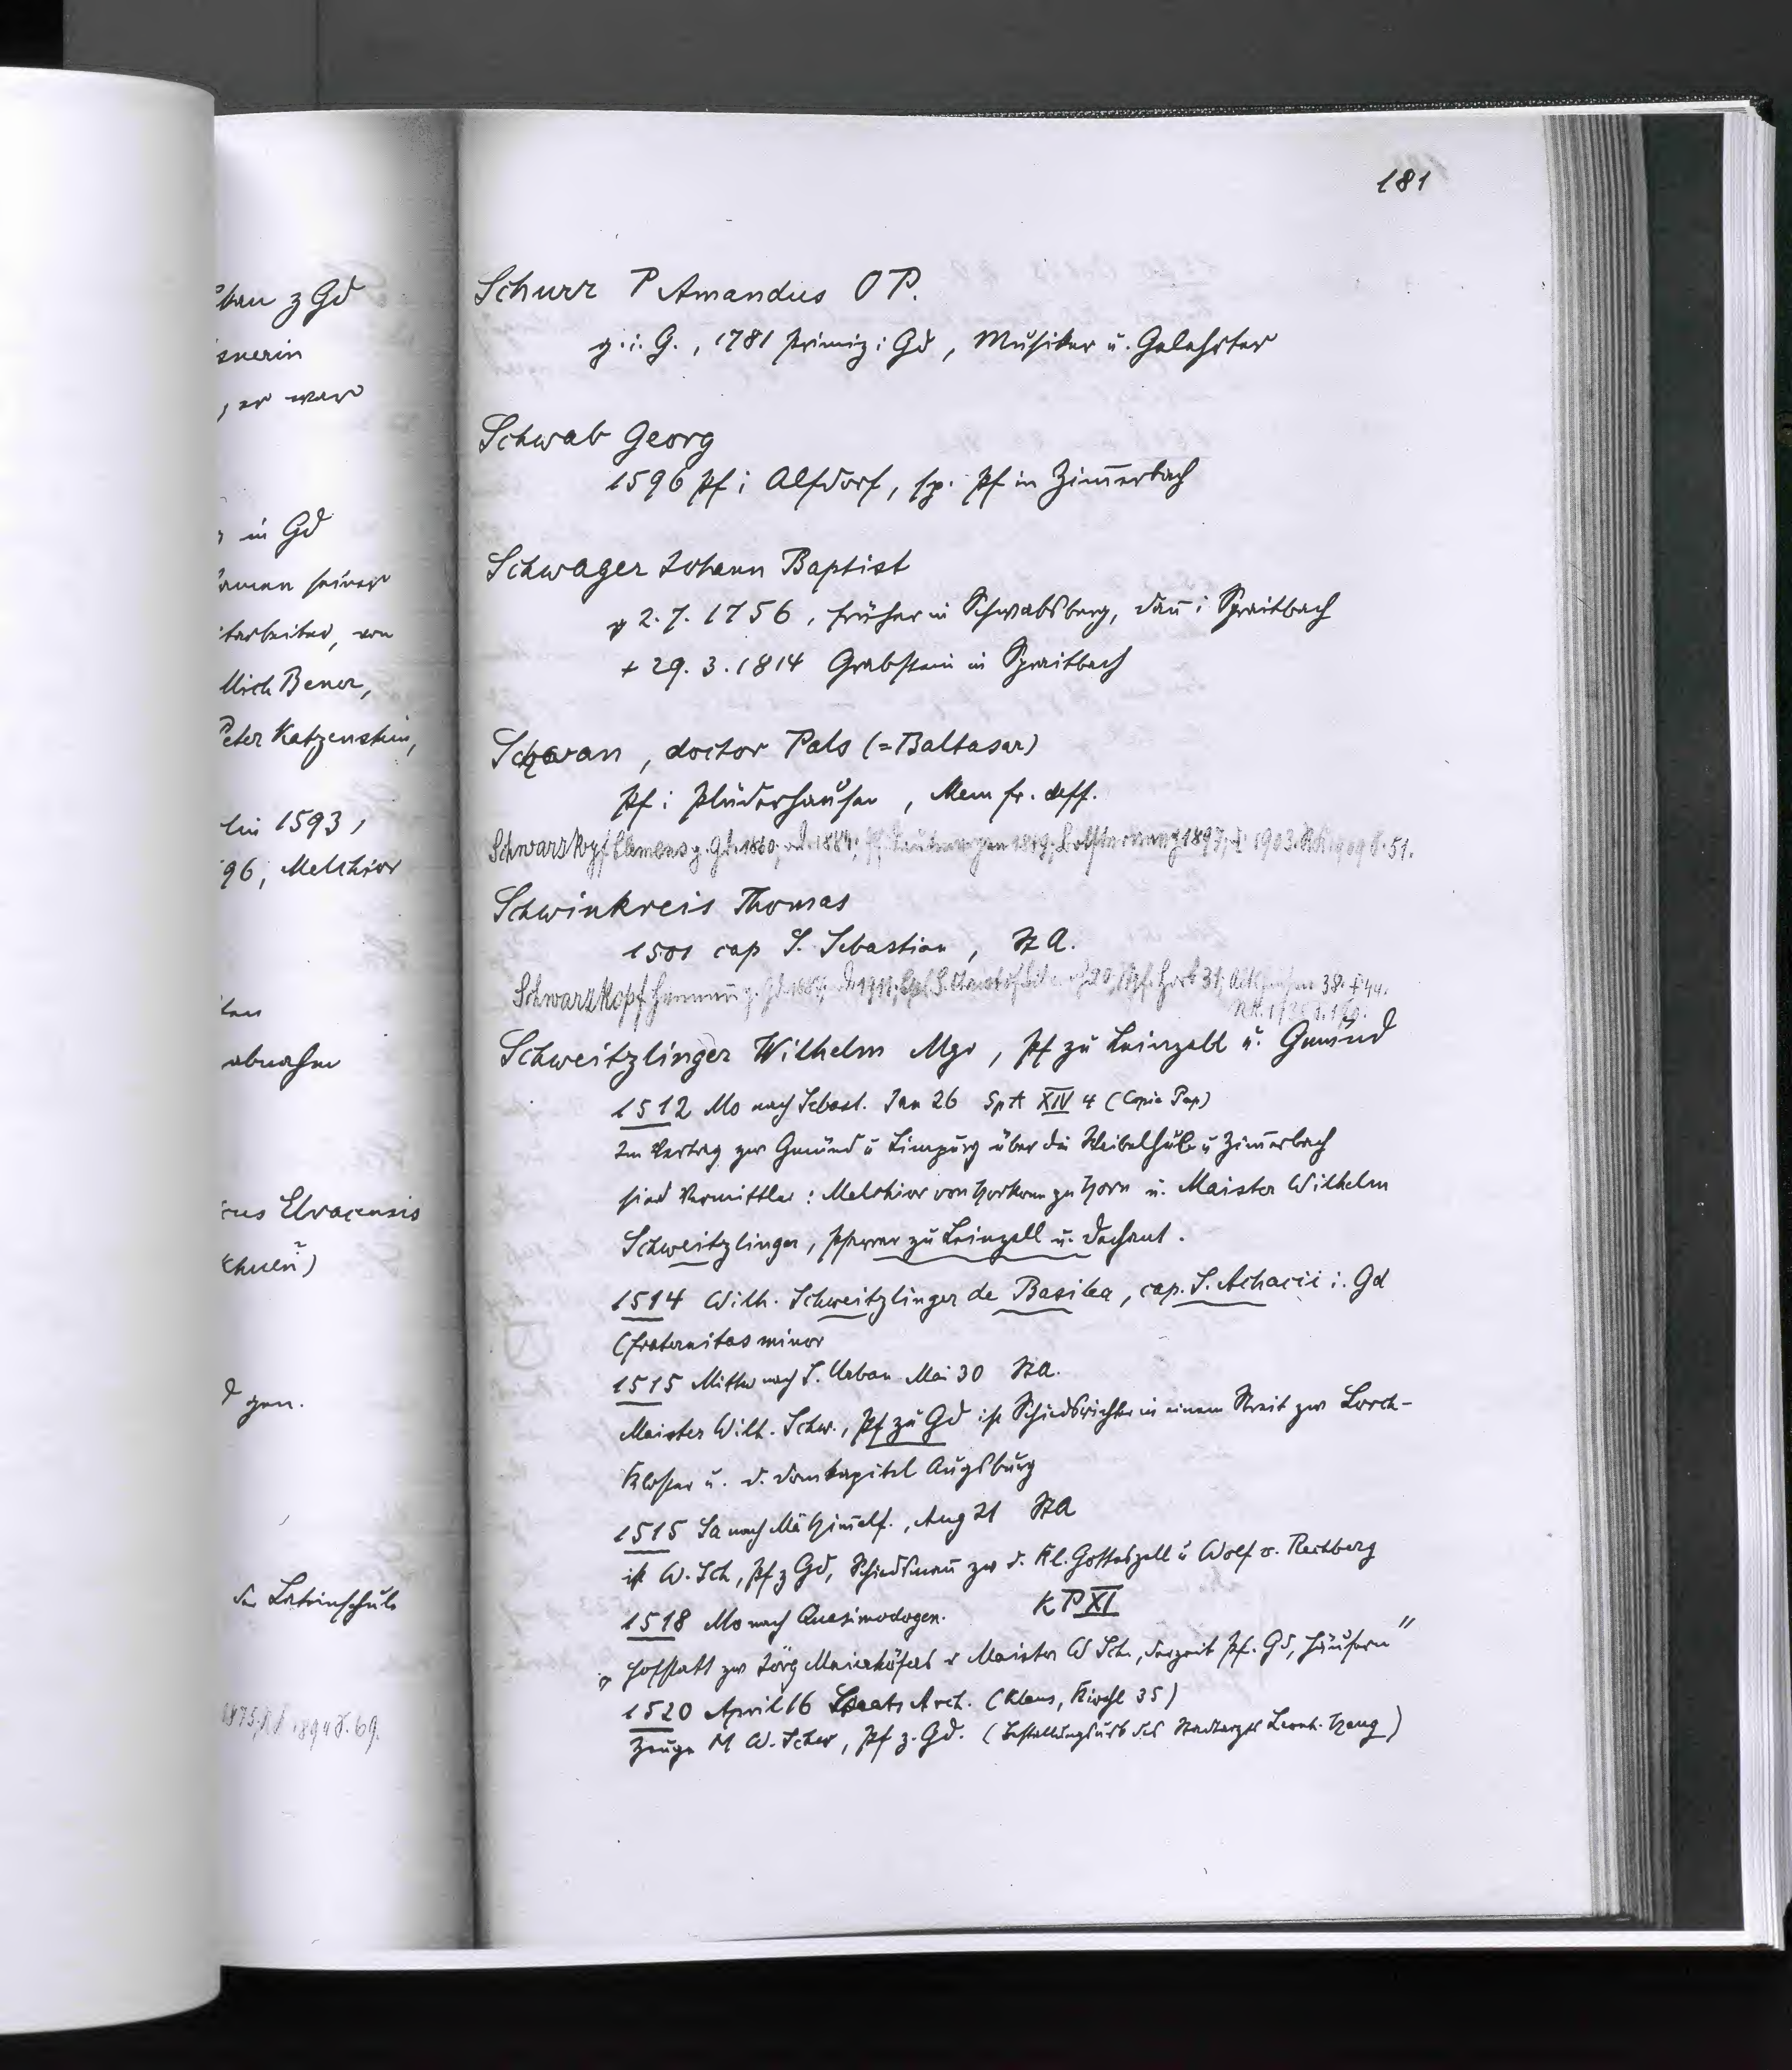 181
Schurr P Amandus O P.
g. i. G., 1781 Primiz i Gd, Musiker u. Gelehrter
Schwab Georg
1596 Pf i Alfdorf, sp. Pf in Zim̄erbach
Schwager Johann Baptist
g 2. 7. 1756, früher in Schwabsberg, dan̄ i Spraitbach
+ 29. 3. 1814 Grabstein in Spraitbach
Schwan, doctor Pals (=Baltasar)
Pf i Plüderhausen, Mem fr. deff.
Schwarzkopf Clemens g. Gd. 1860; 1903. 1909 S. 51.
Schwinkreis Thomas
1501 cap S. Sebastian, StA.
Schwarzkopf Horb 31; 38. + 44.
Schweitzlinger Wilhelm Mgr, Pf zu Leinzell u. Gmünd
1512 Mo nach Sebast. Jan 26 SpA XIV 4 (Copia Pap)
Im Vertrag zw Gmünd u Limpurg über die Waibelhube u Zim̄erbach
sind Vermittler: Melchior von Horkem zu Horn u. Maister Wilhelm
Schweitzlinger, Pfarrer zu Leinzell u. Dechant.
1514 Wilh. Schweitzlinger de Basilea, cap. S. Achacii i. Gd
(fraternitas minor
1515 Mittw nach S. Urban Mai 30 StA.
Meister Wilh. Schw., Pf zu Gd ist Schiedsrichter in einem Streit zw Lorch-
Kloster u. d. Domkapitel Augsburg
1515 Sa nach Mä Him̄elf., Aug 21 StA
ist W. Sch, Pf z Gd, Schiedsman̄ zw d. Kl. Gotteszell u Wolf v. Rechberg
1518 Mo nach Quasimodogen. K P XI
„Hofstatt zw Jörg Maierhöfers u Maister W Sch., derzeit Pf. Gd, Häusern"
1520 April 16 Staats Arch. (Klaus, Kirchl 35)
Zeuge M W. Schw, Pf z. Gd. (Bestellungsurk des Stadtarztes Leonh. Haug)